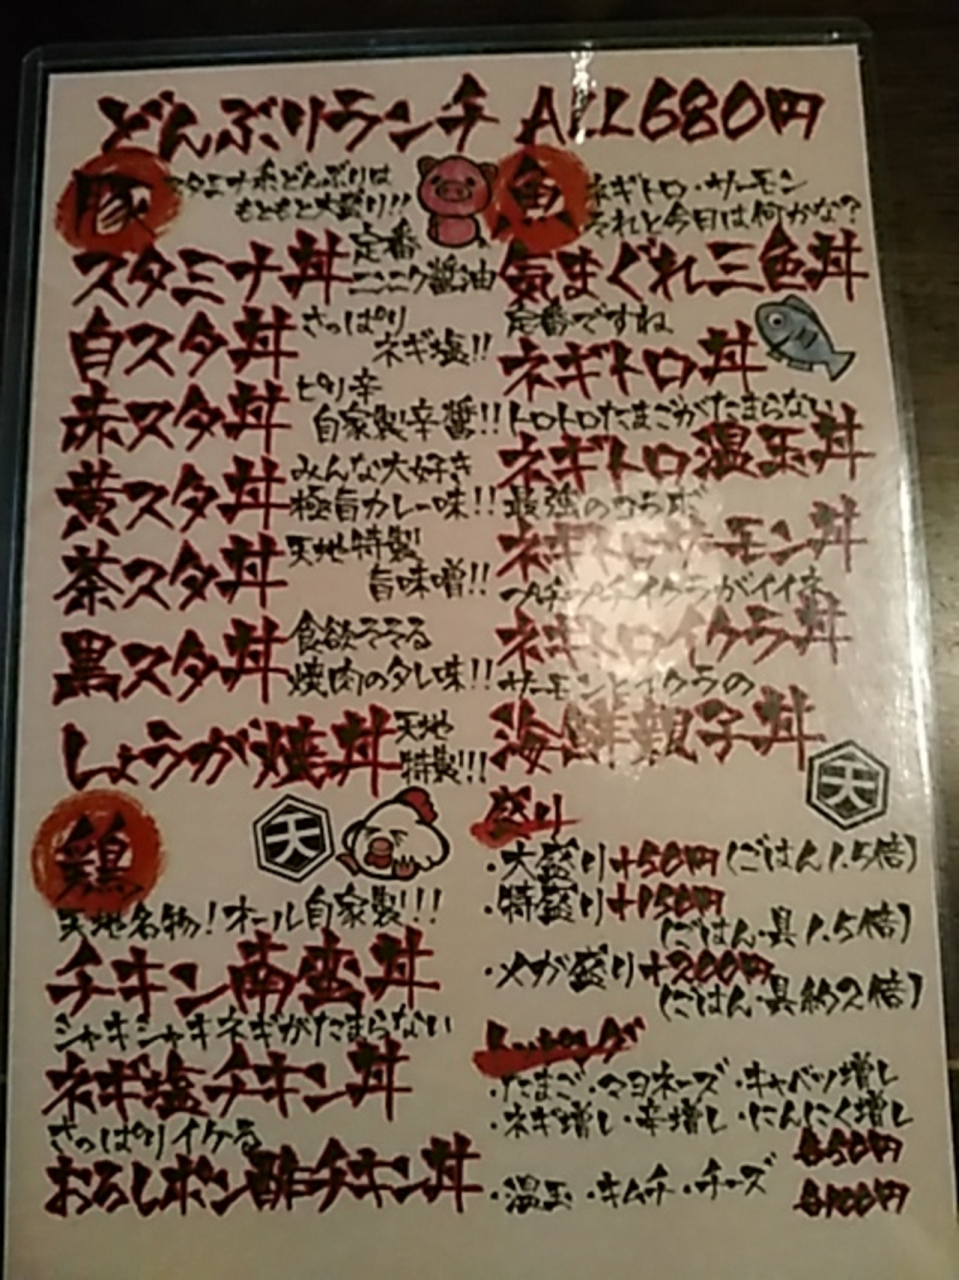 どんぶりランチ ALL680円
豚
スタミナ丼どんぶりは
もともと大盛り!!
スタミナ丼
定番
ニンニク醤油
白スタ丼
さっぱり
ネギ塩!!
赤スタ丼
ピリ辛
自家製辛醤!!
黄スタ丼
みんな大好き
極旨カレー味!!
茶スタ丼
天地特製
旨味噌!!
黒スタ丼
食欲そそる
焼肉のタレ味!!
しょうが焼丼
天地
特製!!!
鶏
天
天地名物!オール自家製!!!
チキン南蛮丼
シャキシャキネギがたまらない
ネギ塩チキン丼
さっぱりイケる
おろしポン酢チキン丼
魚
ネギトロ・サーモン
それと今日は何かな?
気まぐれ三色丼
定番ですね
ネギトロ丼
トロトロたまごがたまらない
ネギトロ温玉丼
最強のコラボ
ネギトロサーモン丼
プチップチイクラがイイネ
ネギトロイクラ丼
サーモンとイクラの
海鮮親子丼
天
盛り
・大盛り+50円(ごはん1.5倍)
・特盛り+150円
(ごはん・具1.5倍)
・メガ盛り+200円
(ごはん・具約2倍)
トッピング
・たまご・マヨネーズ・キャベツ増し
・ネギ増し・辛増し・にんにく増し
各50円
・温玉・キムチ・チーズ
各100円